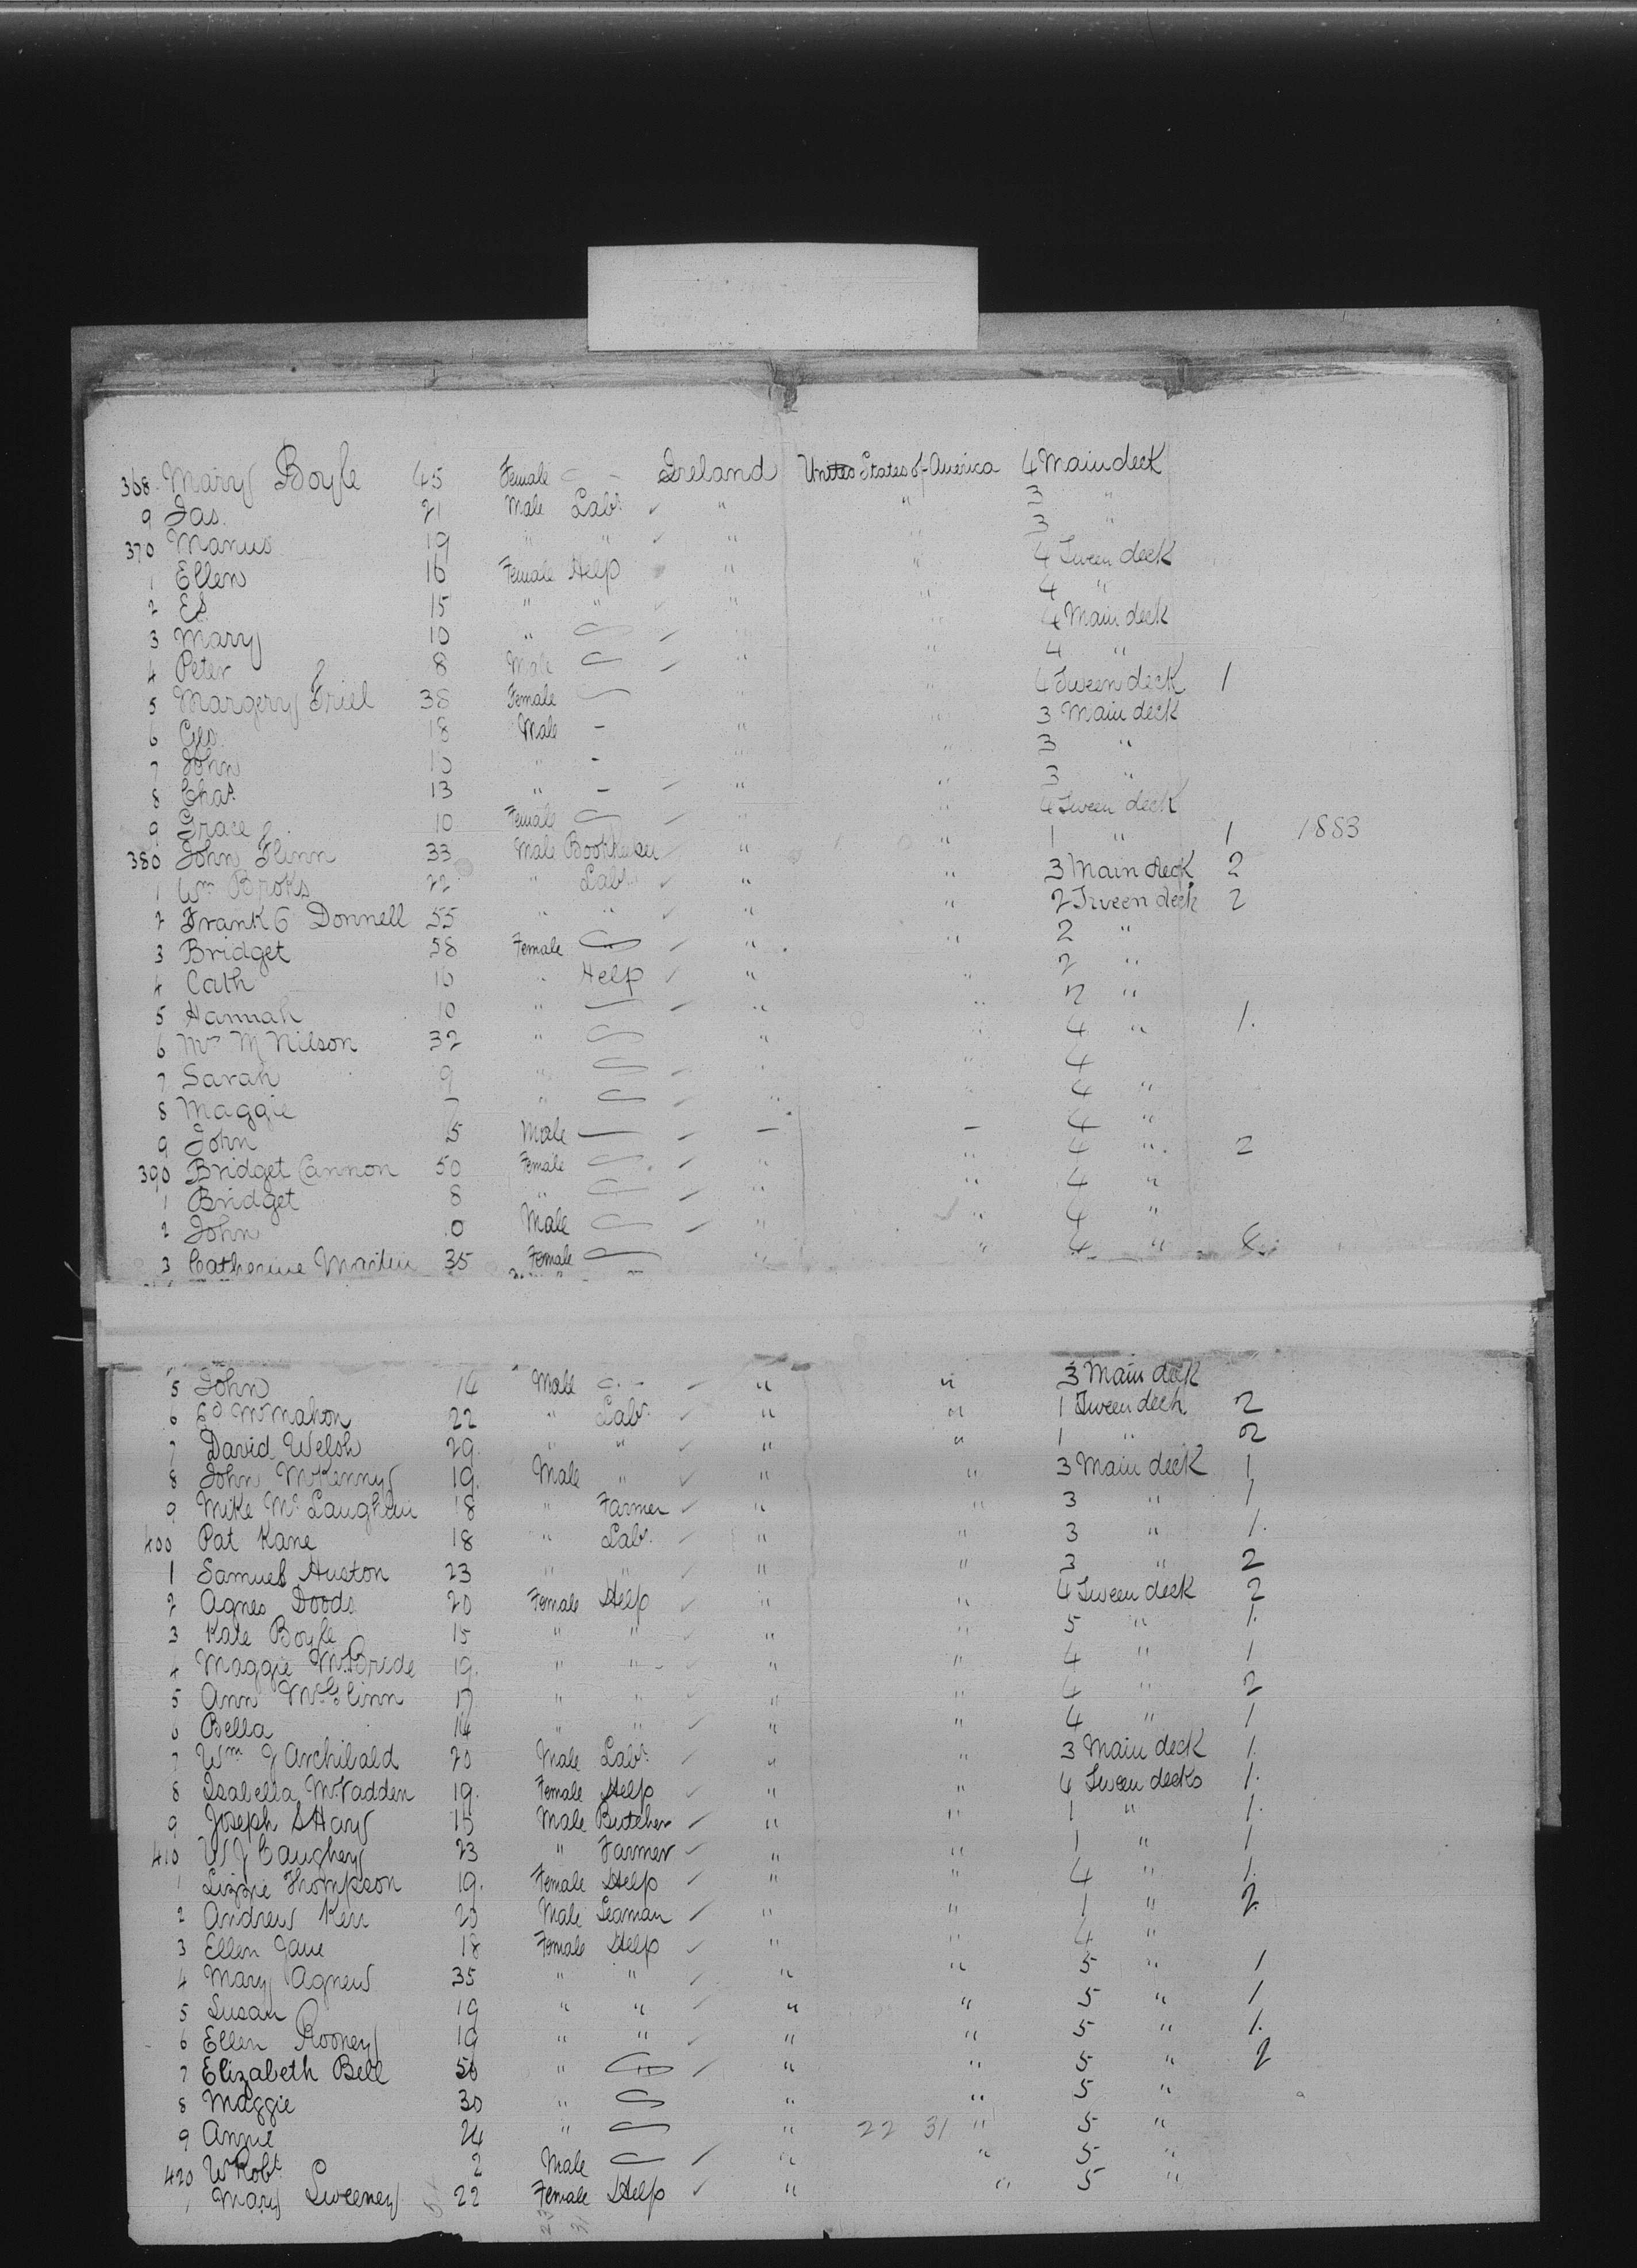 368 Mary Boyle 45 Female — Ireland United States of America 4 Main deck
9 Jas. 21 Male Labr. ✓ " " 3 "
370 Manus 19 " " ✓ " " 3 "
1 Ellen 16 Female Help " " 4 Tween deck
2 15 " " ✓ " " 4 "
3 Mary 10 " — ✓ " " 4 Main deck
4 Peter 8 Male — ✓ " " 4 "
5 Margery Friel 38 Female — " " 4 Tween deck 1
6 Geo. 18 Male - " " 3 Main deck
7 John " - " " 3 "
8 Chas. 13 " - ✓ " " 3 "
9 Grace 10 Female — ✓ " " 4 Tween deck
380 John Flinn 33 Male Bookkeeper ✓ " " 1 " 1 1883
1 Wm Broks 22 " Labr. ✓ " " 3 Main deck 2
2 Frank O Donnell 55 " " ✓ " " 2 Tween deck 2
3 Bridget 58 Female — ✓ " " 2 "
4 Cath 16 " Help ✓ " " 2 "
5 Hannah 10 " — ✓ " " 2 "
6 Mrs M Nilson 32 " — " " 4 " 1.
7 Sarah 9 " — ✓ " " 4
8 Maggie 7 " — ✓ " " 4 "
9 John 5 Male — ✓ — — 4 "
390 Bridget Cannon 50 Female — ✓ " " 4 " 2
1 Bridget 8 " — ✓ " " 4 "
2 John Male — ✓ " " 4 "
3 Catherine Martin 35 Female — " " 4 "
5 John 14 Male — ✓ " " 3 Main deck
6 Ed McMahon 22 " Labr. ✓ " " 1 Tween deck 2
7 David Welsh 29. " " ✓ " " 1 " 2
8 John McKenny 19. Male " ✓ " " 3 Main deck 1
9 Mike McLaughlin 18 " Farmer ✓ " " 3 " 1
400 Pat Kane 18 " Labr. ✓ " " 3 " 1.
1 Samuel Huston 23 " " ✓ " " 3 " 2
2 Agnes Doods 20 Female Help ✓ " " 4 Tween deck 2
3 Kate Boyle 15 " " ✓ " " 5 " 1.
4 Maggie McBride 19. " " ✓ " " 4 " 1
5 Ann McGlinn 17 " " ✓ " " 4 " 2
6 Bella 14 " " ✓ " " 4 " 1
7 Wm J Archibald 20 Male Labr. ✓ " " 3 Main deck 1.
8 Isabella McFadden 19. Female Help ✓ " " 4 Tween decks 1.
9 Joseph S Hay Male Butcher ✓ " " 1 " 1.
410 W J Caughey 23 " Farmer ✓ " " 1 " 1
1 Lizzie Thompson 19. Female Help ✓ " " 4 " 1.
2 Andrew Kerr 20 Male Seaman ✓ " " 1 " 2.
3 Ellen Jane 18 Female Help ✓ " " 4 "
4 Mary Agnew 35 " " ✓ " " 5 " 1
5 Susan 19 " " ✓ " " 5 " 1
6 Ellen Rooney 19 " " ✓ " " 5 " 1.
7 Elizabeth Bell 50 " — ✓ " " 5 " 2
8 Maggie 30 " — " " 5 "
9 Annie 24 " — " 22 31 " 5 "
420 W Robt. 2 Male — ✓ " " 5 "
1 Mary Sweeney 22 Female Help ✓ " " 5 "
23 31